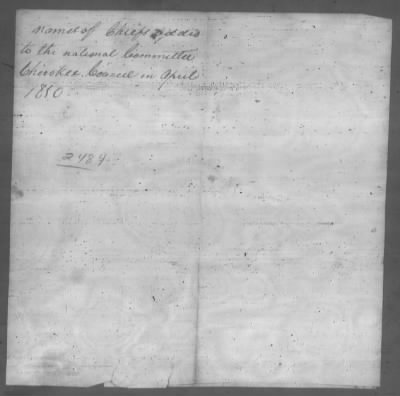 names of Chiefs added
to the national Committee
Cherokee Council in April
1810
2484